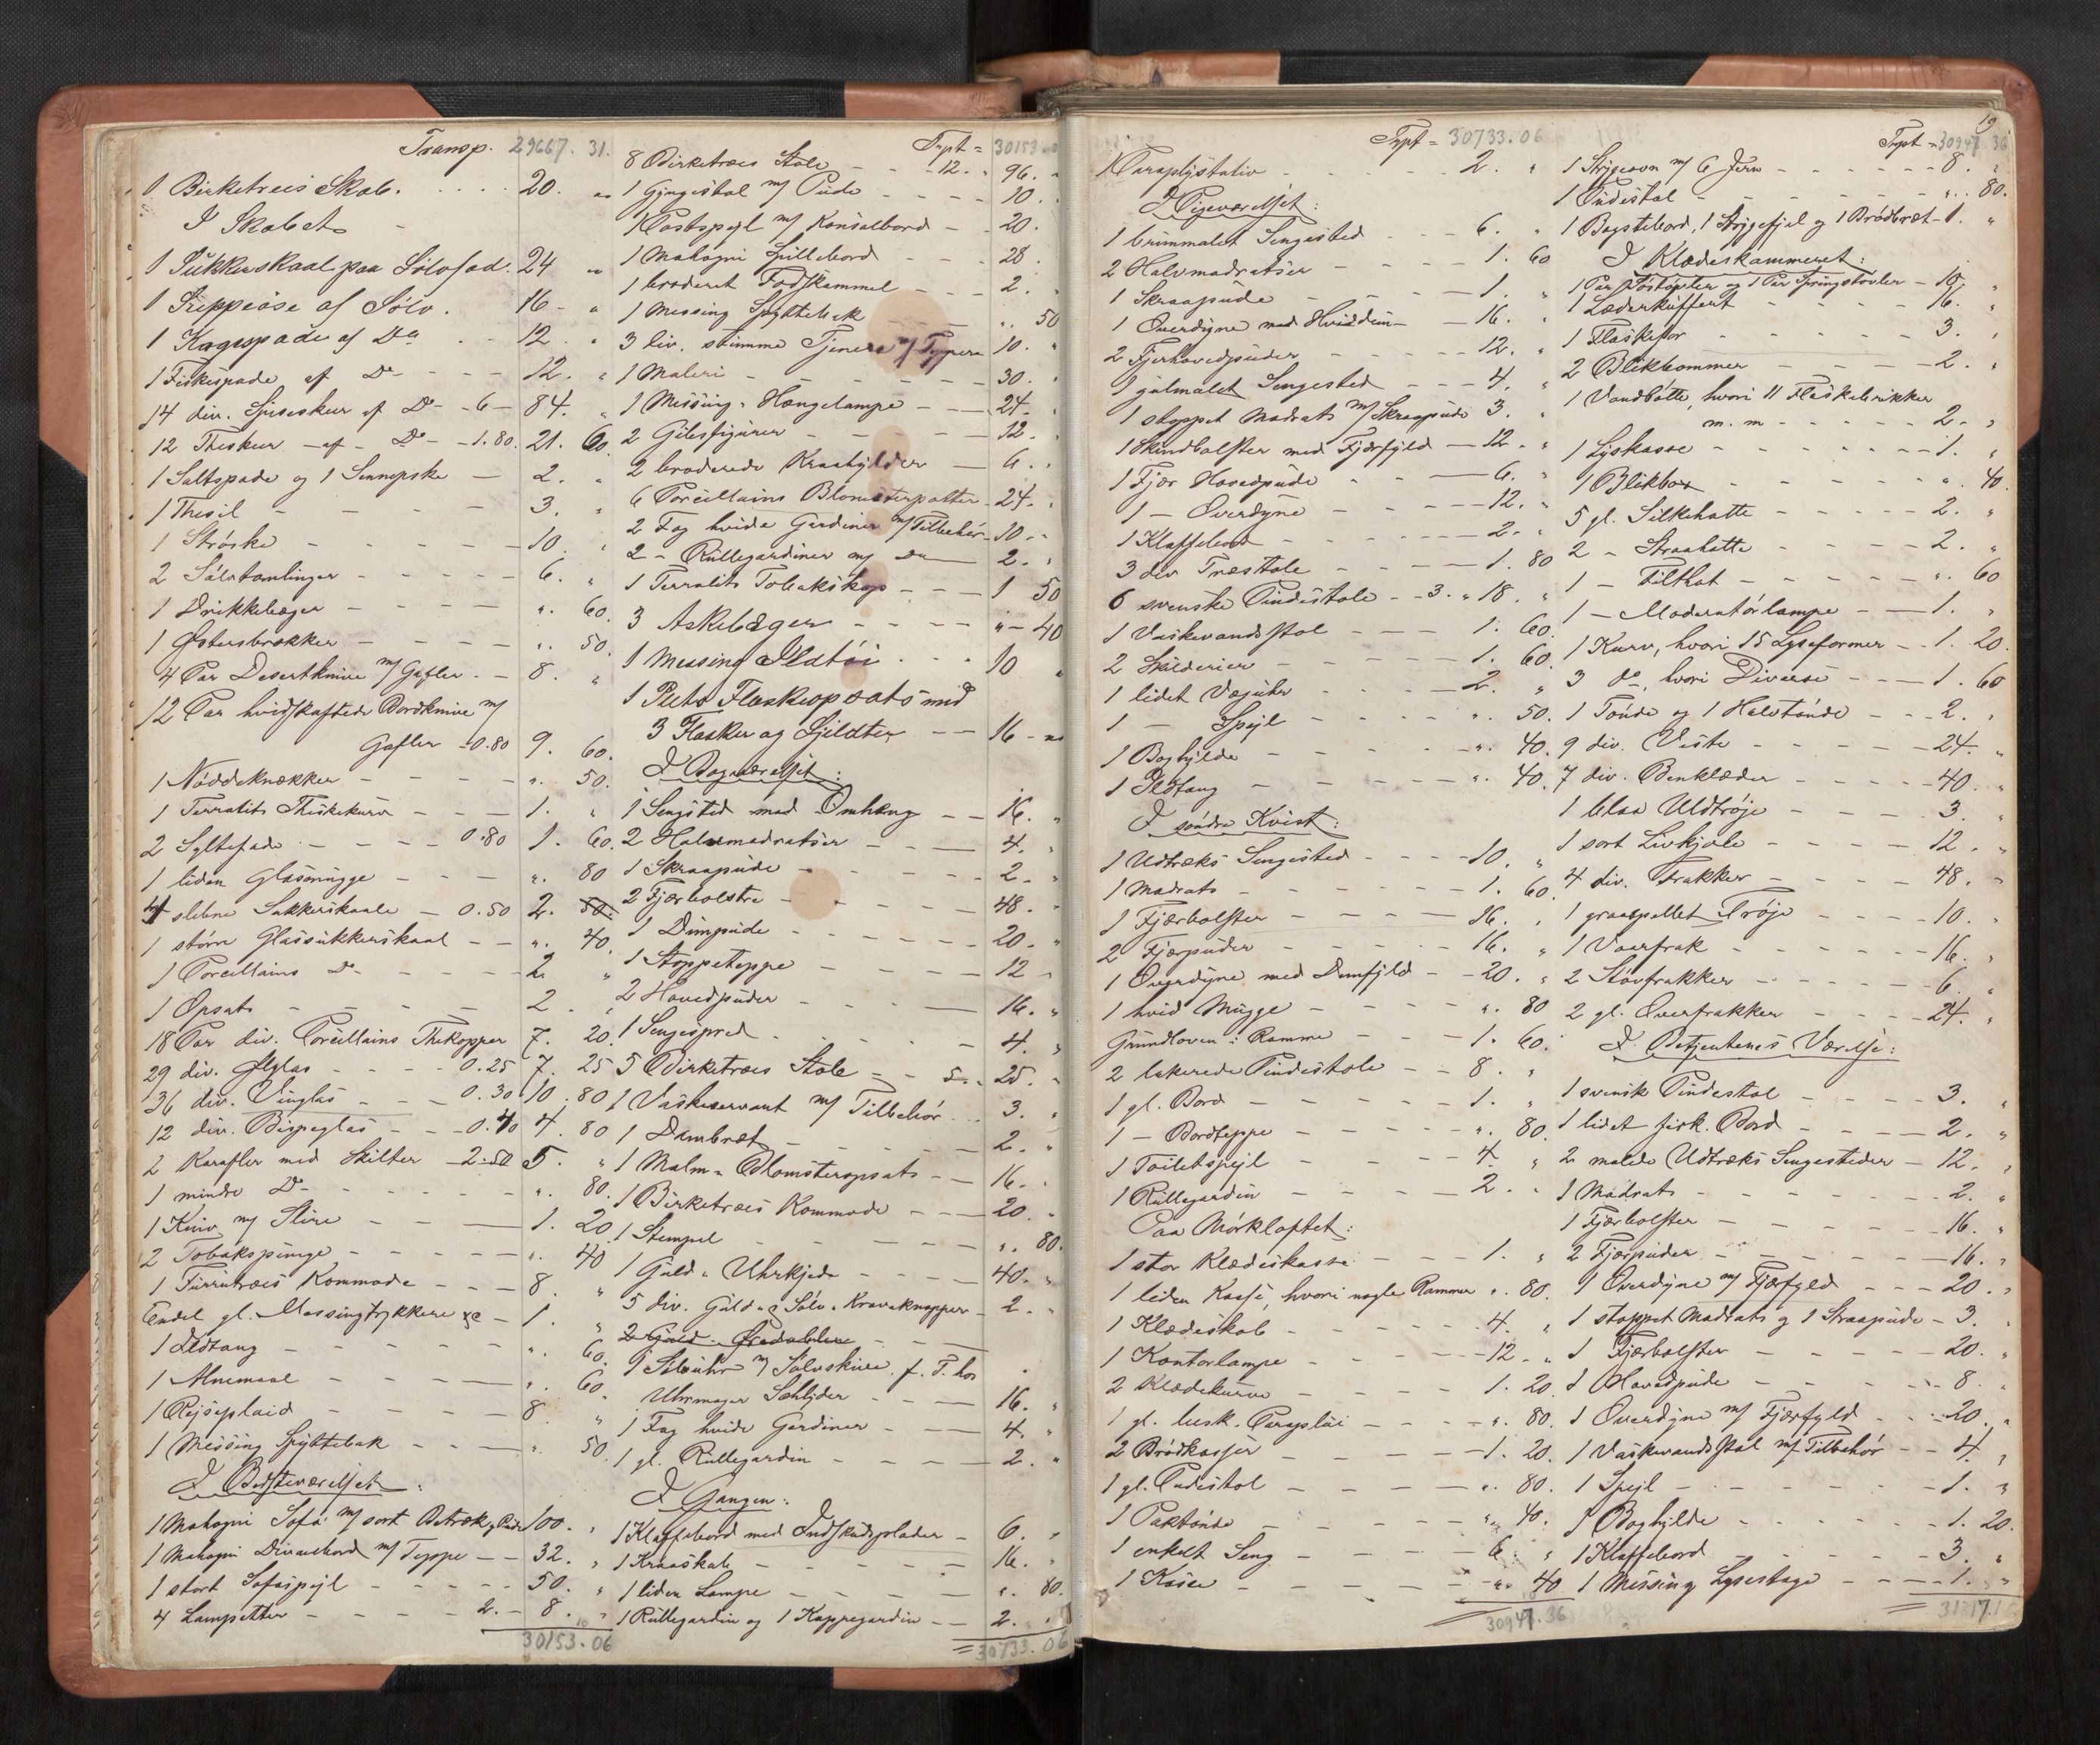 Transp. 29667. 31.
1 Birketræes Skab. 20. "
I Skabet
1 Sukkerskaal paa Sølvfad. 24 "
1 Suppeøse af Sølv. 16 - "
1 Kagespade af Do 12. "
1 Fiskespade af Do 12. "
14 div. Spiseskeer af Do - 6 - 84. "
12 Theskeer - af - Do - 1.80. 21. 60
1 Saltspade og 1 Sennepske - 2. "
1 Thesil 3. "
1 Strøske 10. "
2 Sølvtomlinger 6. "
1 Drikkebæger ". 60.
1 Østersbrækker ". 50.
4 Par Desertknive m/ Gafler. 8. "
12 Par hvidskaftede Bordknive m/
Gafler - 0.80 9. 60.
1 Nøddeknækker ". 50.
1 Terralits Theskekurv 1. "
2 Syltefade 0.80 1. 60.
1 liden Glasmugge ". 80
4 slebne Sukkerskaale - 0.50 2. 50.
1 større Glassukkerskaal ". 40.
1 Porcellains Do 2. "
1 Opsats 2. "
18 Par div. Porcellains Thekopper 7. 20.
29 div. Ølglas 0.25 7. 25
36 div. Vinglas 0.30 10. 80
12 div. Bispeglas 0.40 4. 80
2 Karafler med Skilter 2.50 5. "
1 mindre Do ". 80.
1 Kniv m/ Slire 1. 20
2 Tobakspunge ". 40
1 Furrutræes Kommode 8. "
Endel gl. Messingtrykkere &c 1. "
1 Ildtang ". 60.
1 Alnemaal ". 60.
1 Rejseplaid 8. "
1 Messing Spyttebak ". 50
I Bedsteværelset:
1 Mahogni Sofa m/ sort Betræk og Puder 100. "
1 Mahogni Divanbord m/ Teppe 32. "
1 stort Sofaspejl 50. "
4 Lampetter 2. - 8. "
30153.06
Trpt = 30153
8 Birketræes Stole - 12. " 96. "
1 Gyngestol m/ Pude 10. "
1 Postspejl m/ Konsolbord 20. "
1 Mahogni Spillebord 28. "
1 broderet Fodskammel 2. "
1 Messing Spyttebak ". 50
3 liv. stumme Tjenere m/ 10. "
1 Maleri 30. "
1 Messing-Hængelampe 24. "
2 Gibsfigurer 12. "
2 broderede Kraahylder 6. "
6 Porcellains Blomsterpotter 24. "
2 Fag hvide Gardiner m/ Tilbehør 10. "
2 - Rullegardiner m/ Do 2. "
1 Terralits Tobakskop 1 50
3 Askebæger " - 40
1 Messing Ildtøi 10 "
1 Plets Flaskeopsats med
3 Flasker og Skildter 16 - "
I Bagværelset:
1 Sengsted med Omhæng 16. "
2 Halvmadratser 4. "
1 Skraapude 2. "
2 Fjærbolstre 48. "
1 Dunpude 20. "
1 Stoppeteppe 12 "
2 Hovedpuder 16. "
1 Sengespred 4. "
5 Birketræes Stole - 5. " 25. "
1 Vaskeservant m/ Tilbehør 3. "
1 Dambræt 2. "
1 Malm-Blomsteropsats 16. "
1 Birketræes Kommode 20. "
1 Stempel ". 80.
1 Guld-Uhrkjede 40. "
5 div. Guld- og Sølv-Kraveknapper 2. "
2 Guld Øredobber
1 Stueuhr m/ Sølvskive f. T. hos
Uhrmager 16. "
1 Fag hvide Gardiner 4. "
1 gl. Rullegardin 2. "
I Gangen:
1 Klaffebord med Indskudsplader 6. "
1 Kraaskab 16. "
1 liden Lampe ". 80.
1 Rullegardin og 1 Kappegardin 2. "
30733.06
19
Trpt = 30733.06
1 Paraplystativ 2. "
I Pigeværelset:
1 brunmalet Sengested 6. "
2 Halvmadratser 1. 60
1 Skraapude 1. "
1 Overdyne med Hviddun 16. "
2 Fjerhovedpuder 12. "
1 gulmalet Sengested 4. "
1 stoppet Madrats m/ Skraapude 3. "
1 Skindbolster med Fjærfyld 12. "
1 Fjær Hovedpude 6. "
1 - Overdyne 12. "
1 Klaffebord 2. "
3 div Træstole 1. 80
6 svenske Pindestole - 3. " 18. "
1 Vaskevandsstol 1. 60.
2 Skilderier 1. 60.
1 lidet Væguhr 2. "
1 - Spejl ". 50.
1 Boghylde ". 40.
1 Ildtang ". 40.
I søndre Kvist:
1 Udtræks Sengested 10. "
1 Madrats 1. 60
1 Fjærbolster 16. "
2 Fjærpuder 16. "
1 Overdyne med Dunfyld 20. "
1 hvid Mugge ". 80
Grundloven i Ramme 1. 60.
2 lakerede Pindestole 8. "
1 gl. Bord 1. "
1 - Bordteppe ". 80.
1 Toiletspejl 4. "
1 Rullegardin 2. "
Paa Mørkloftet:
1 stor Klædeskasse 1. "
1 liden Kasse, hvori nogle Rammer ". 80.
1 Klædeskab 4. "
1 Kontorlampe 12. "
2 Klædekurve 1. 20.
1 gl. brusk. Paraplui ". 80.
2 Brødkasser 1. 20.
1 gl. Pudestol ". 80.
1 Paktønde ". 40.
1 enkelt Seng 6. "
1 Kasse ". 40
30947.36
Trpt = 30947.36
1 Strygeovn m/ 6 Jern 8. "
1 Pudestol ". 80.
1 Bagstebord, 1 Strygefjel og 1 Brødbræt 1. "
I Klædeskammeret:
1 Par Søstøvler og 1 Par Springstøvler 10. "
1 Læderkuffert 16. "
1 Flaskefor 3. "
2 Blikbommer 2. "
1 Vandbøtte, hvori 11 Flaskebrikker
m. m 2. "
1 Lyskasse 1. "
1 Blikbox ". 40.
5 gl. Silkehatte 2. "
2 - Straahatte 2. "
1 - Filthat ". 60
1 - Moderatørlampe 1. "
1 Kurv, hvori 15 Lyseformer 1. 20.
3 do, hvori Diverse 1. 60
1 Tønde og 1 Halvtønde 2. "
9 div. Veste 24. "
7 div. Benklæder 40. "
1 blaa Uldtrøje 3. "
1 sort Livkjole 12. "
4 div. Frakker 48. "
1 graaspettet Trøje 10. "
1 Vaarfrak 16. "
2 Støvfrakker 6. "
2 gl. Overfrakker 24. "
I Betjentenes Værelse:
1 svensk Pindestol 3. "
1 lidet firk. Bord 2. "
2 malede Udtræks Sengesteder 12. "
1 Madrats 2. "
1 Fjærbolster 16. "
2 Fjærpuder 16. "
1 Overdyne m/ Fjærfyld 20. "
1 stoppet Madrats og 1 Skraapude 3. "
1 Fjærbolster 20. "
1 Hovedpude 8. "
1 Overdyne m/ Fjærfyld 20. "
1 Vaskevandsstol m/ Tilbehør 4. "
1 Spejl 1. "
1 Boghylde 1. 20.
1 Klaffebord 3. "
1 Messing Lysestage 1. "
31317.1